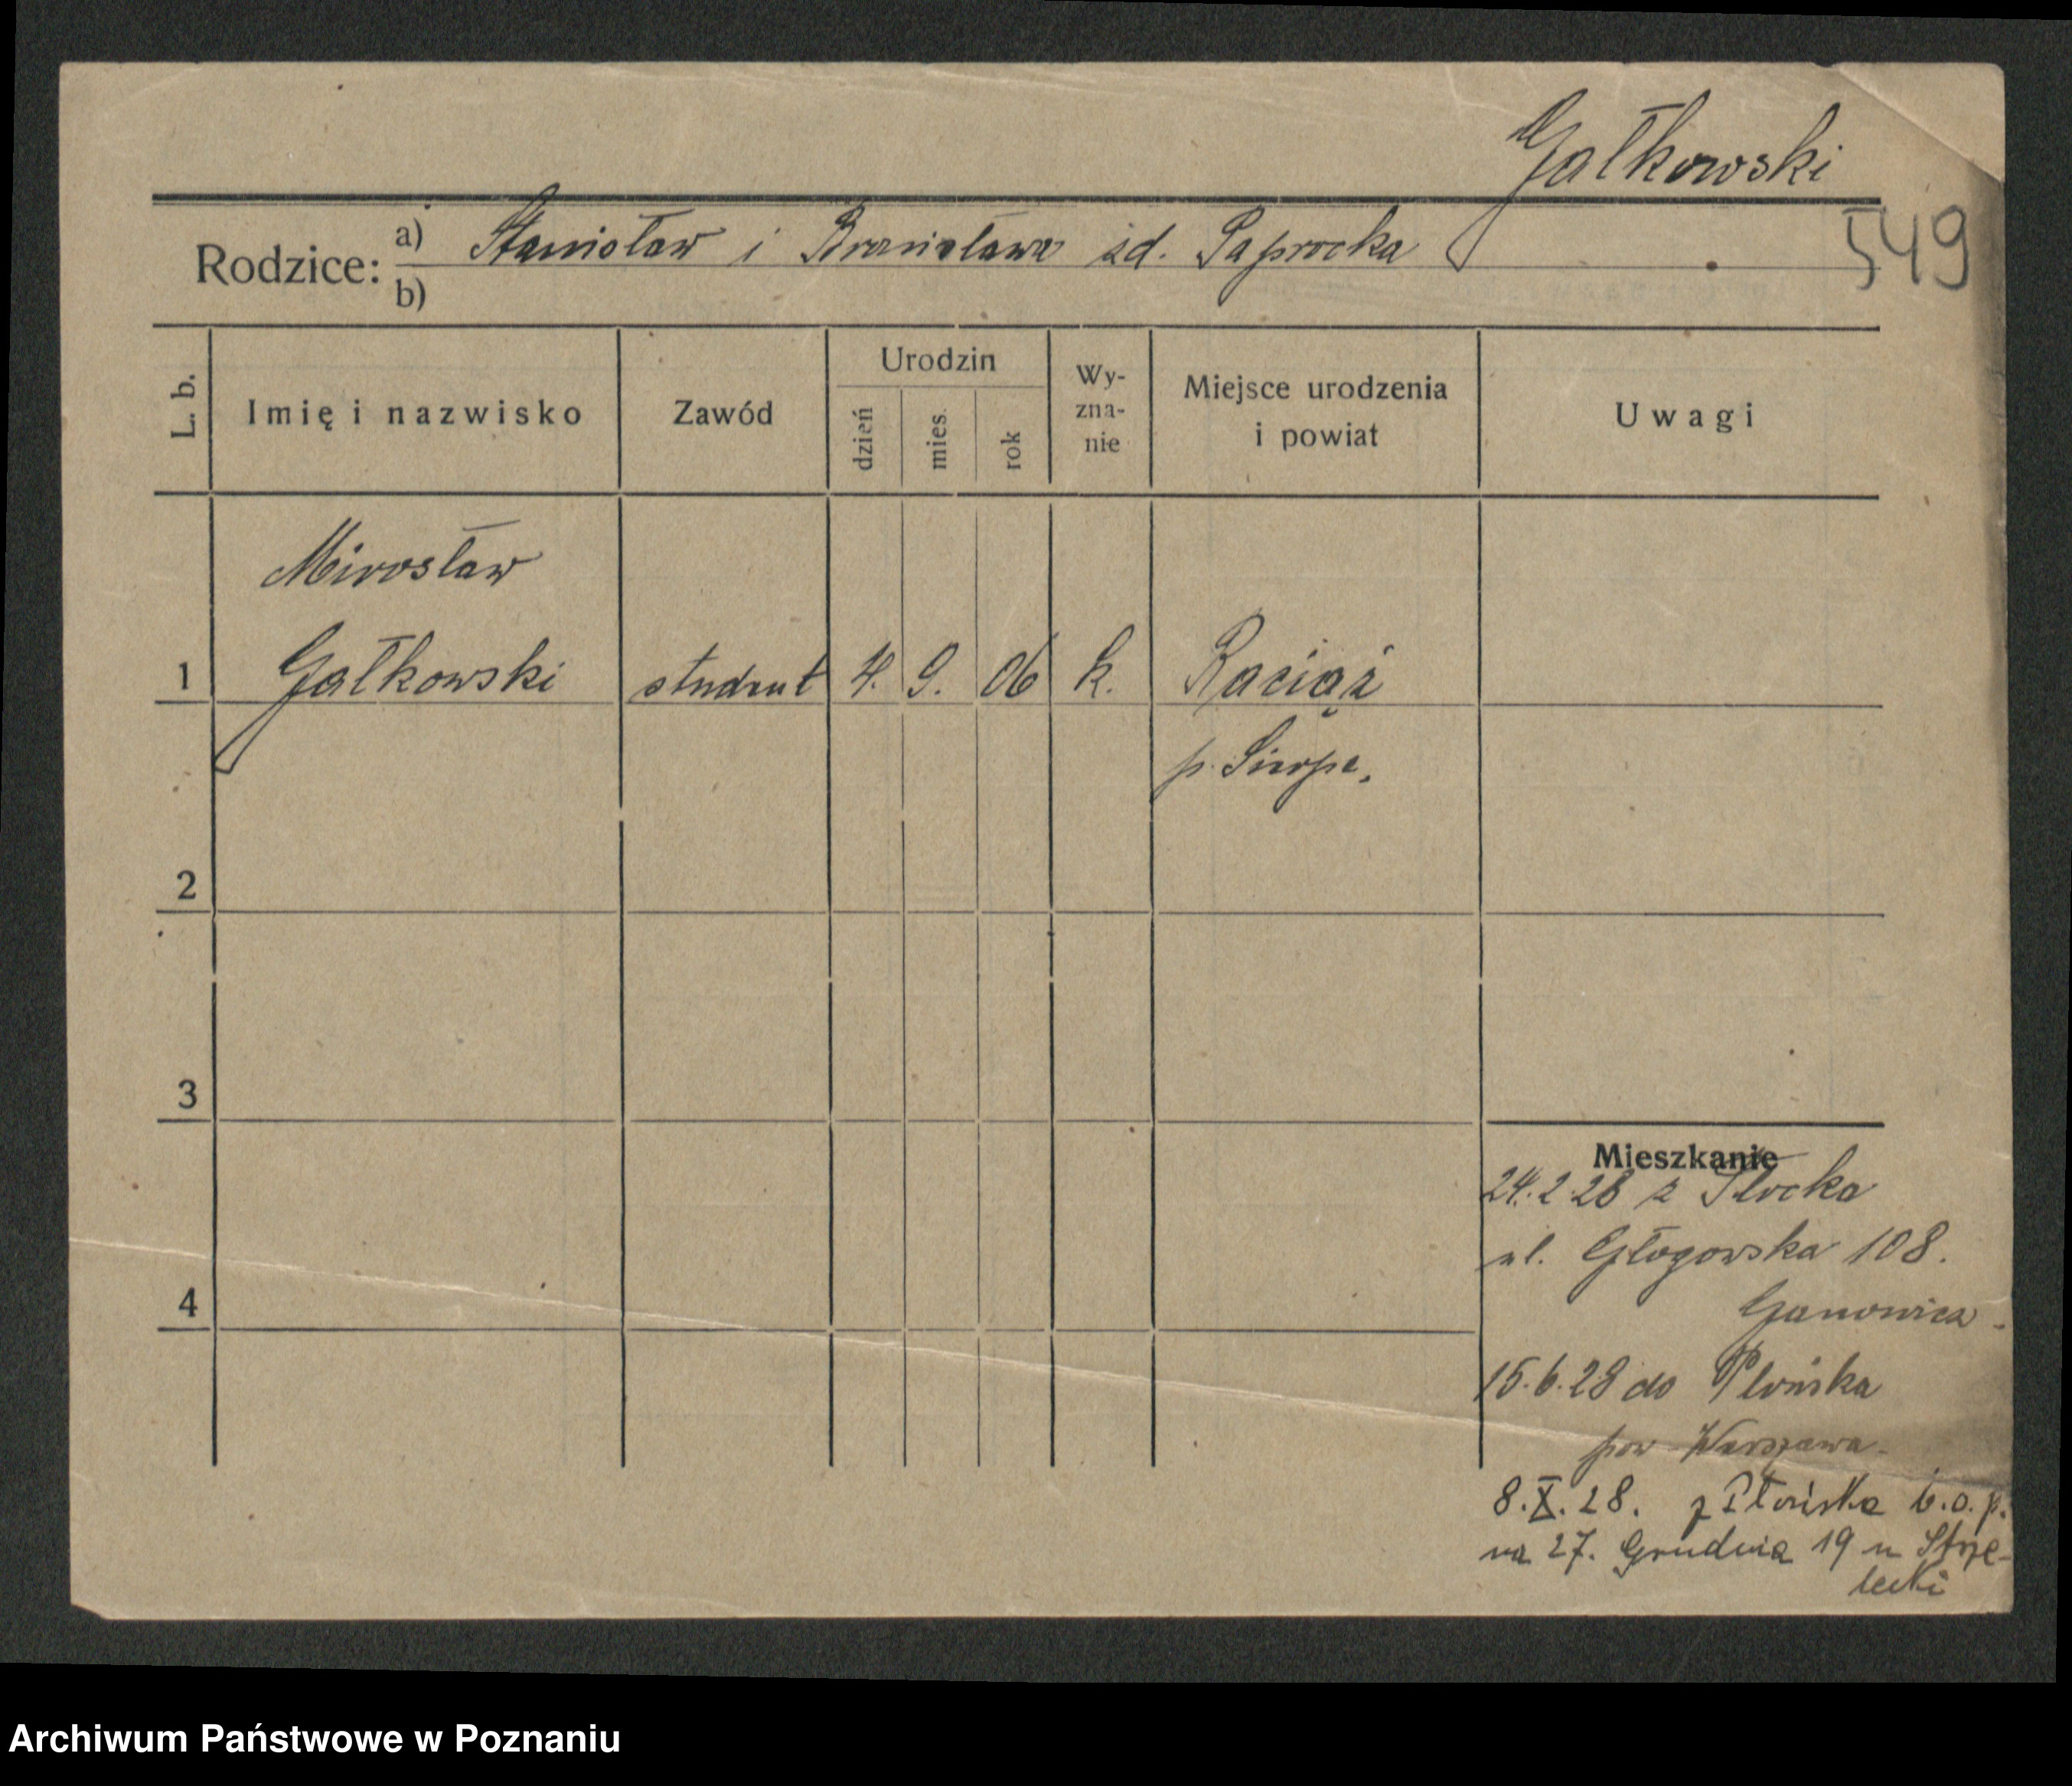 Gałkowski
549
Rodzice: a) Stanisław i Bronisława zd. Paprocka
b)
L. b. Imię i nazwisko Zawód Urodzin dzień mies. rok Wy-zna-nie Miejsce urodzenia i powiat Uwagi
Mirosław
1 Gałkowski student 4. 9. 06 k. Raciąż
p. Sierpc.
2
3
4
Mieszkanie
24.2.28 z Płocka
ul. Głogowska 108.
15.6.28 do Płońska
pow Warszawa
8.X.28. z Płońska b.o.p.
na 27. Grudnia 19 u Strze-
lecki
Archiwum Państwowe w Poznaniu